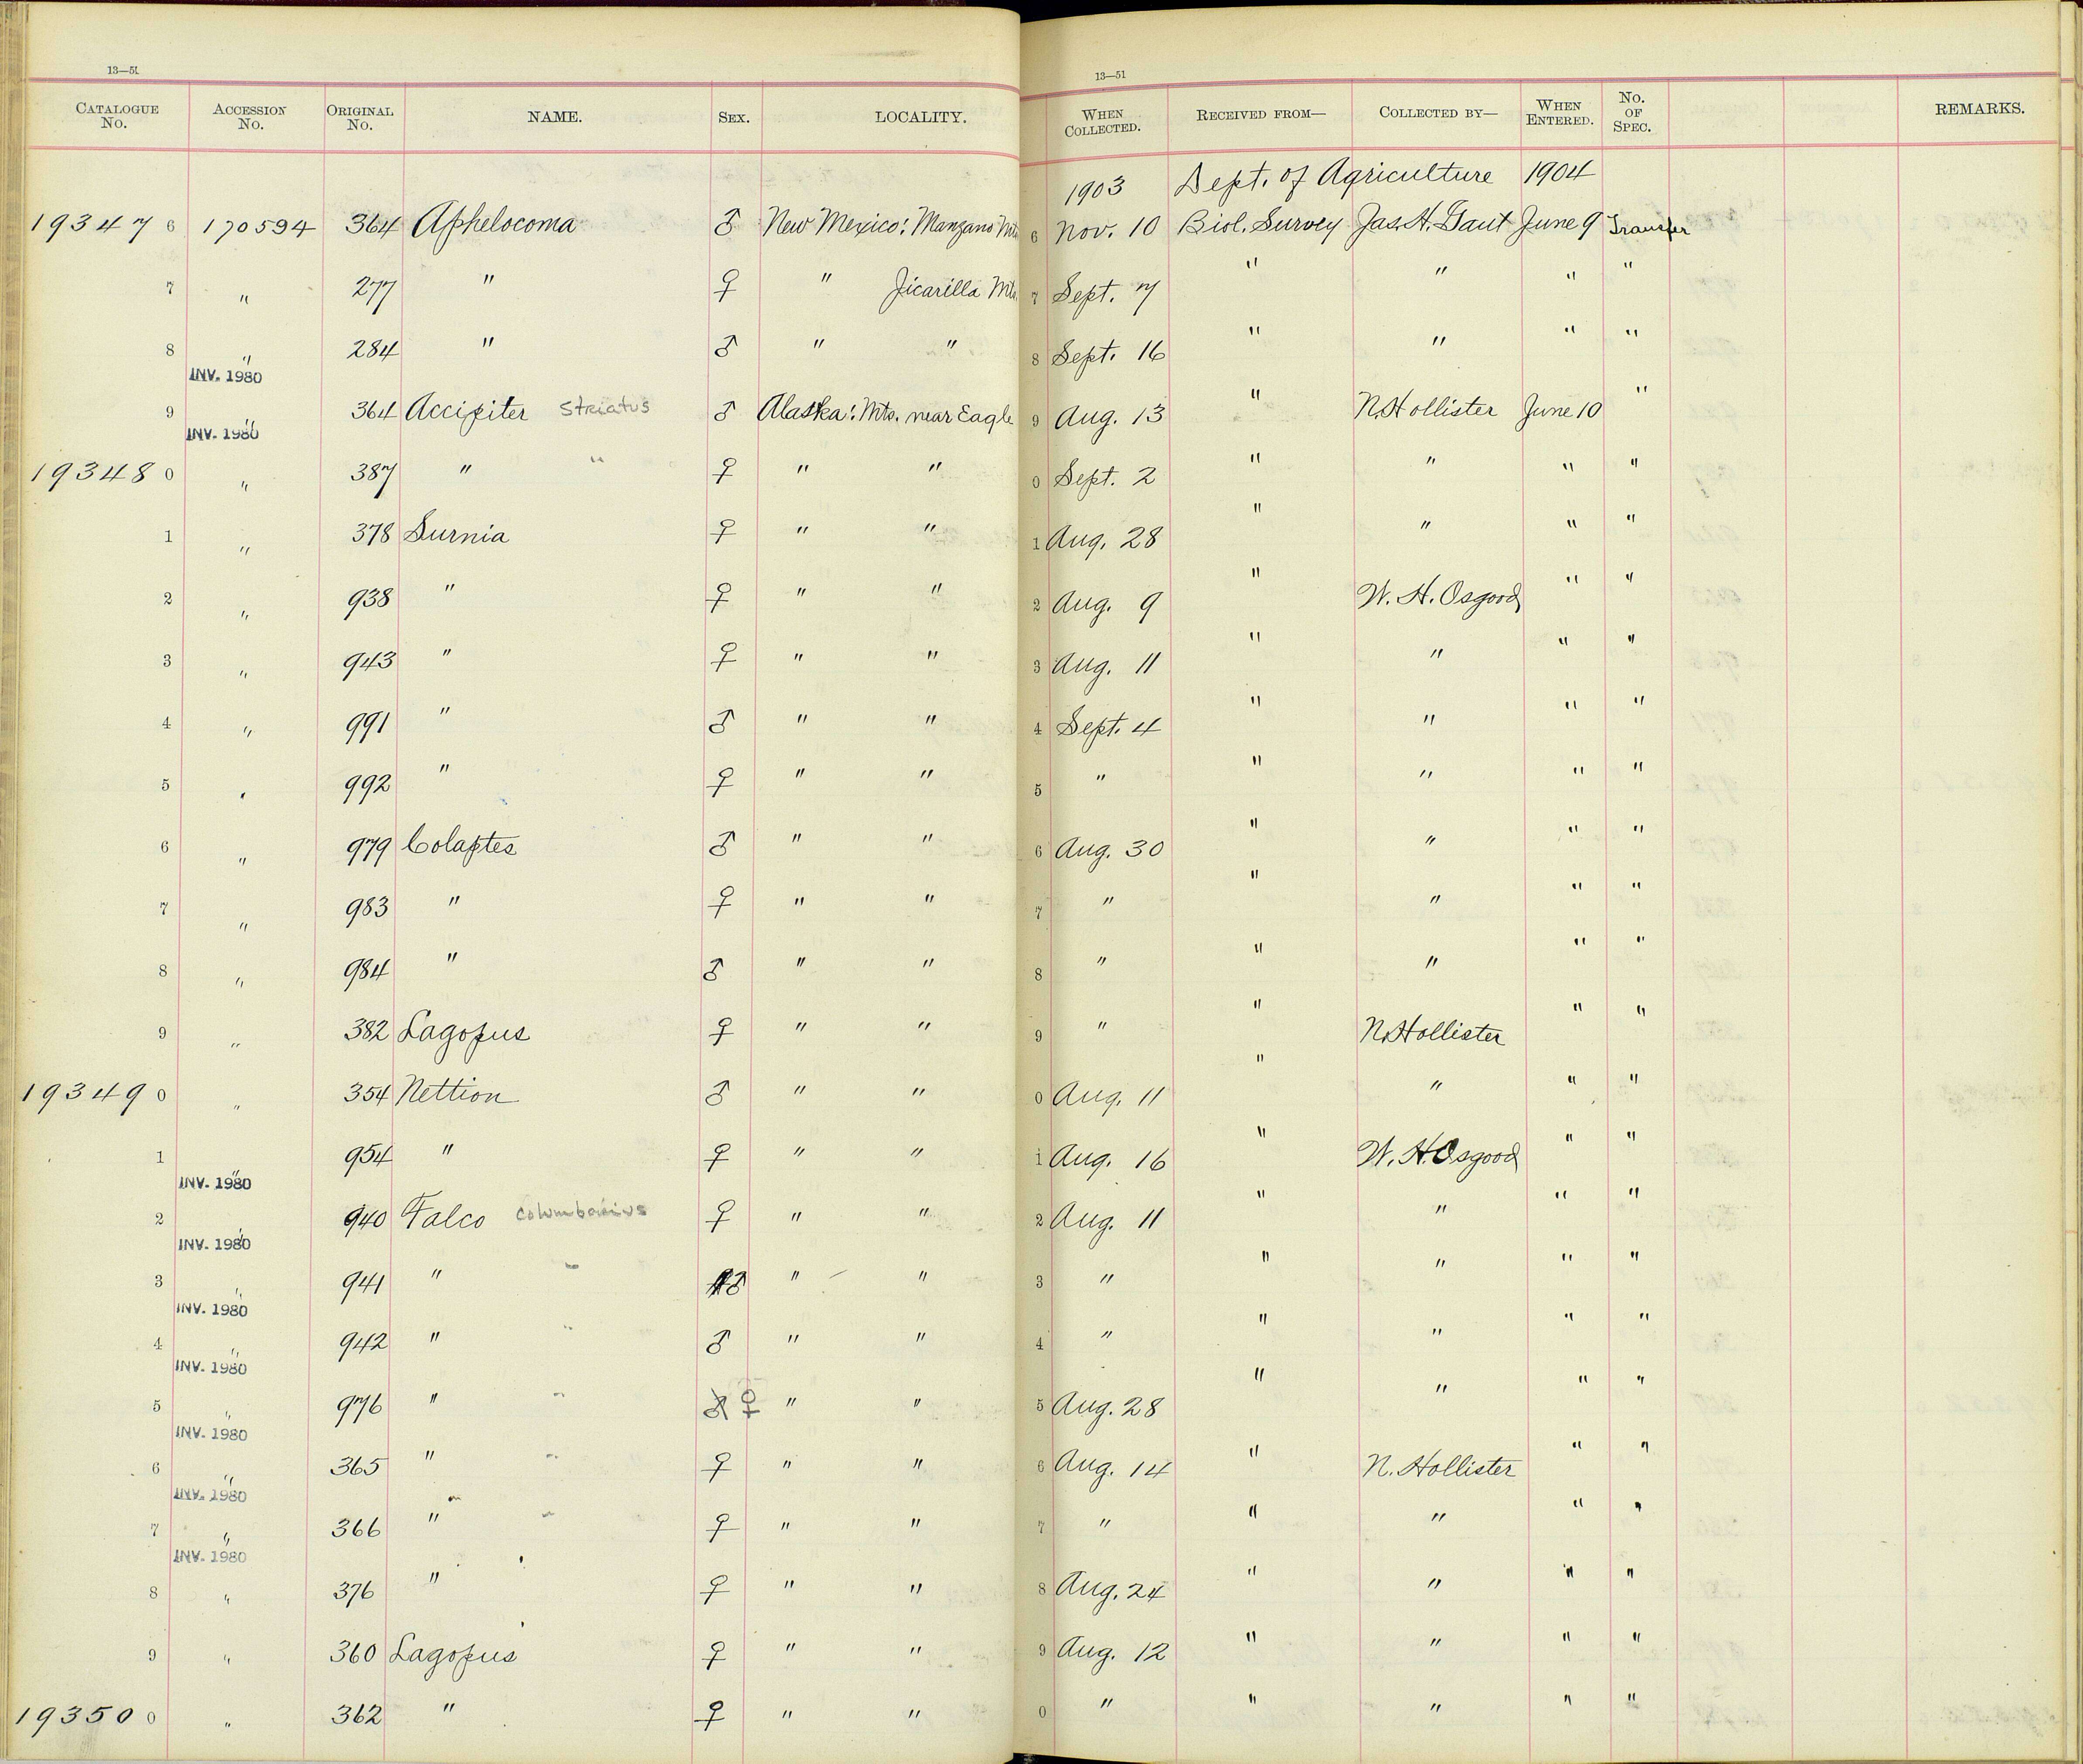 13—51 13—51
CATALOGUE No. ACCESSION No. ORIGINAL No. NAME. SEX. LOCALITY. WHEN COLLECTED. RECEIVED FROM— COLLECTED BY— WHEN ENTERED. No. OF SPEC. REMARKS.
1903 Dept. of Agriculture 1904
19347 6 170594 364 Aphelocoma ♂ New Mexico: Manzano Mts 6 Nov. 10 Biol. Survey Jas. H. Gaut June 9 Transfer
7 " 277 " ♀ " Jicarilla Mts. 7 Sept. 7 " " " "
8 " 284 " ♂ " " 8 Sept. 16 " " " "
INV. 1980
9 " 364 Accipiter striatus ♂ Alaska: Mts. near Eagle 9 Aug. 13 " N. Hollister June 10 "
INV. 1980
19348 0 " 387 " " ♀ " " 0 Sept. 2 " " " "
1 " 378 Surnia ♀ " " 1 Aug. 28 " " " "
2 " 938 " ♀ " " 2 Aug. 9 " W. H. Osgood " "
3 " 943 " ♀ " " 3 Aug. 11 " " " "
4 " 991 " ♂ " " 4 Sept. 4 " " " "
5 " 992 " ♀ " " 5 " " " " "
6 " 979 Colaptes ♂ " " 6 Aug. 30 " " " "
7 " 983 " ♀ " " 7 " " " " "
8 " 984 " ♂ " " 8 " " " " "
9 " 382 Lagopus ♀ " " 9 " " N. Hollister " "
19349 0 " 354 Nettion ♂ " " 0 Aug. 11 " " " "
1 " 954 " ♀ " " 1 Aug. 16 " W. H. Osgood " "
INV. 1980
2 " 940 Falco columbarius ♀ " " 2 Aug. 11 " " " "
INV. 1980
3 " 941 " " ♂ " " 3 " " " " "
INV. 1980
4 " 942 " " ♂ " " 4 " " " " "
INV. 1980
5 " 976 " " ♂ ♀ " " 5 Aug. 28 " " " "
INV. 1980
6 " 365 " " ♀ " " 6 Aug. 14 " N. Hollister " "
INV. 1980
7 " 366 " " ♀ " " 7 " " " " "
INV. 1980
8 " 376 " ♀ " " 8 Aug. 24 " " " "
9 " 360 Lagopus ♀ " " 9 Aug. 12 " " " "
19350 0 " 362 " ♀ " " 0 " " " " "